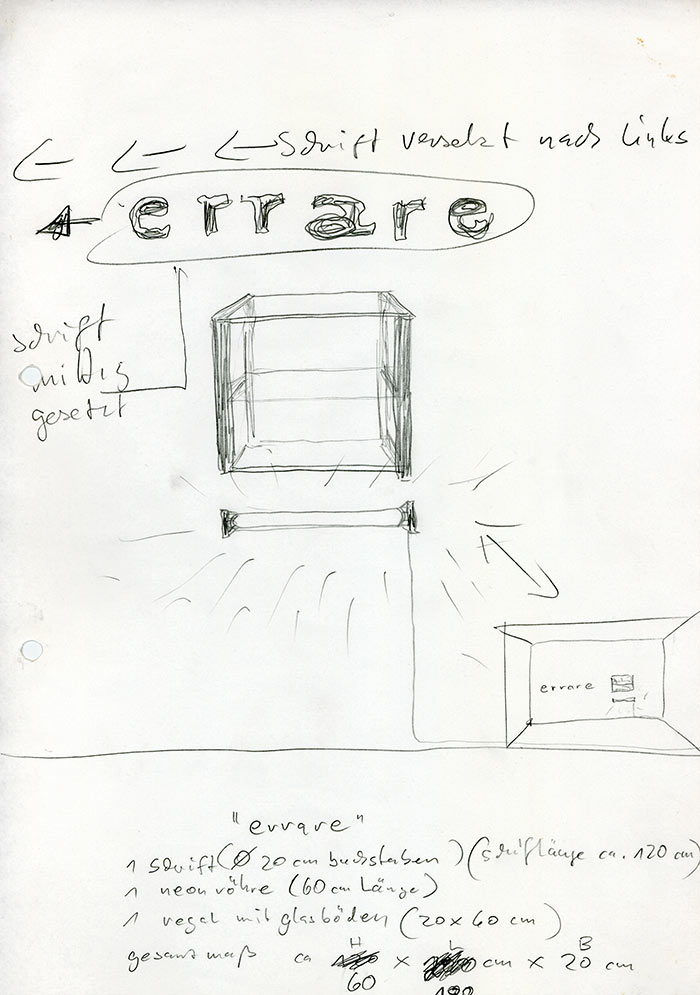 ← ← ← schrift versetzt nach links
errare
schrift
mittig
gesetzt
errare
"errare"
1 schrift (Ø 20 cm buchstaben) (schriftlänge ca. 120 cm)
1 neonröhre (60 cm Länge)
1 regal mit glasböden (20 x 60 cm)
H L B
gesamtmaß ca x cm x 20 cm
60